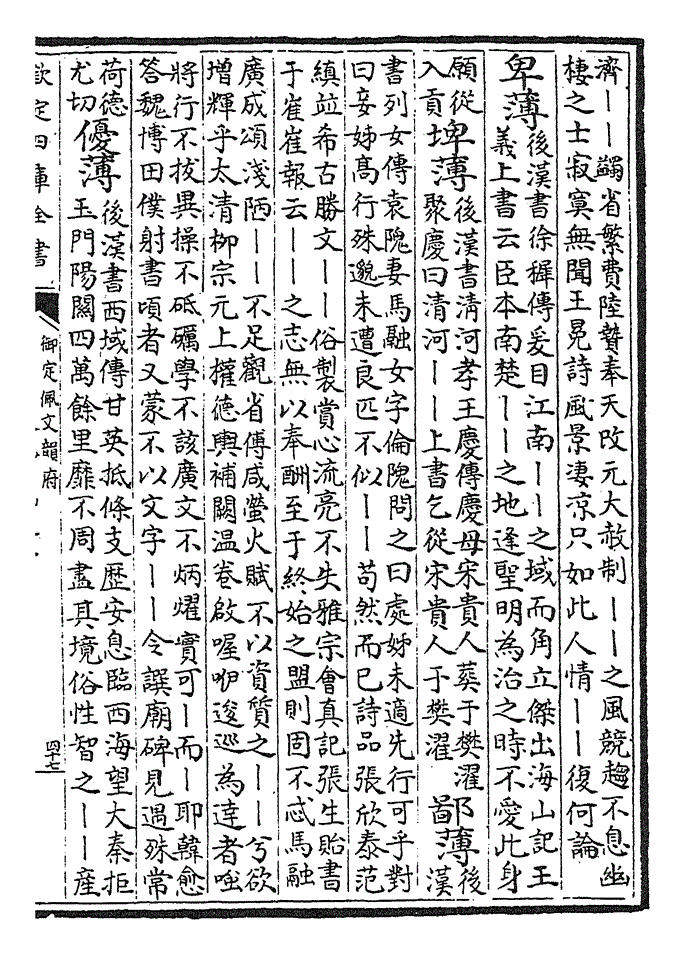 濟丨丨蠲省繁費陸贄奉天改元大赦制丨丨之風競趨不息幽
棲之士寂寞無聞王冕詩風景凄涼只如此人情丨丨復何論
卑薄
後漢書徐穉傳爰自江南丨丨之域而角立傑出海山記王
義上書云臣本南楚丨丨之地逢聖明為治之時不愛此身
願從
入貢
埤薄
後漢書清河孝王慶傳慶母宋貴人葬于樊濯
聚慶曰清河丨丨上書乞從宋貴人于樊濯
鄙薄
後
漢
書列女傳袁隗妻馬融女字倫隗問之曰處姊未適先行可乎對
曰妾姊高行殊邈未遭良匹不似丨丨苟然而已詩品張欣泰范
縝竝希古勝文丨丨俗製賞心流亮不失雅宗會真記張生貽書
于崔崔報云丨丨之志無以奉酬至于終始之盟則固不忒馬融
廣成頌淺陋丨丨不足觀省傅咸螢火賦不以資質之丨丨兮欲
增輝乎太清柳宗元上權德輿補闕溫卷啟喔咿逡巡為達者嗤
將行不拔異操不砥礪學不該廣文不炳燿實可丨而丨耶韓愈
答魏博田僕射書頃者又蒙不以文字丨丨令譔廟碑見遇殊常
荷德
尤切
優薄
後漢書西域傳甘英抵條支歷安息臨西海望大秦拒
玉門陽關四萬餘里靡不周盡其境俗性智之丨丨產
欽定四庫全書
御定佩文韻府
四十七